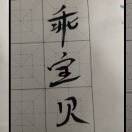 乖宝贝